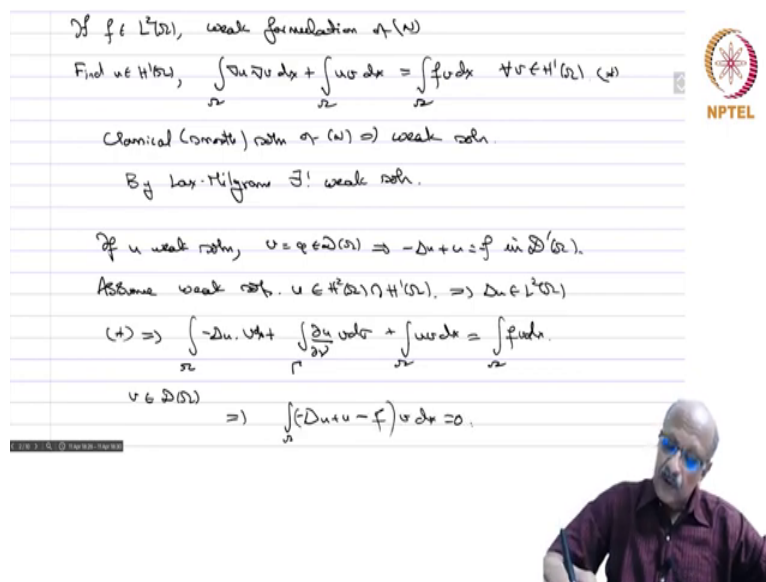 If f ∈ L²(Ω), weak formulation of (N)
Find u ∈ H¹(Ω), ∫_Ω ∇u.∇v dx + ∫_Ω uv dx = ∫_Ω fv dx ∀v ∈ H¹(Ω). (*)
NPTEL
Classical (smooth) soln of (N) ⇒ weak soln.
By Lax-Milgram ∃! weak soln.
If u weak soln, v = φ ∈ D(Ω) ⇒ -Δu + u = f in D'(Ω).
Assume weak soln. u ∈ H²(Ω) ∩ H¹(Ω). ⇒ Δu ∈ L²(Ω)
(*) ⇒ ∫_Ω -Δu. v dx + ∫_Γ ∂u/∂ν v dσ + ∫_Ω uv dx = ∫_Ω fv dx.
v ∈ D(Ω)
⇒ ∫_Ω (-Δu + u - f) v dx = 0.